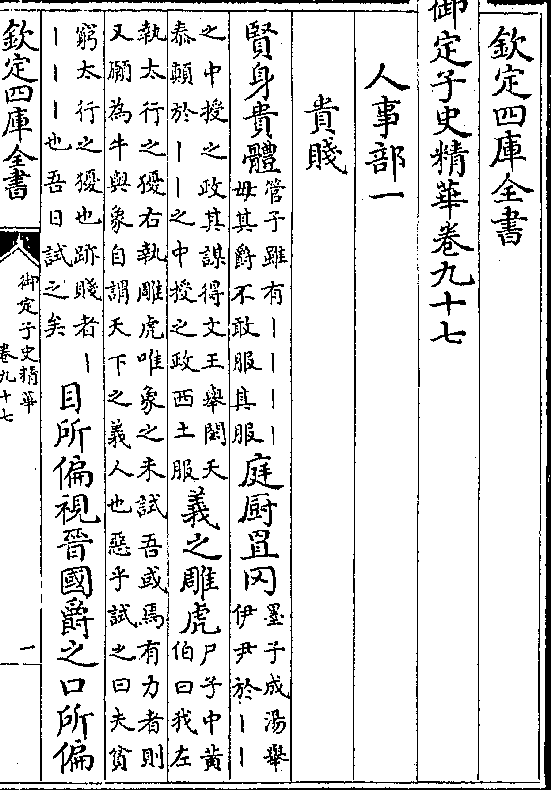 欽定四庫全書
御定子史精華卷九十七
人事部一
貴賤
賢身貴體
管子雖有丨丨丨丨
毋其爵不敢服其服
庭厨罝网
墨子成湯舉
伊尹於丨丨
之中授之政其謀得文王舉閎夭
泰顛於丨丨之中授之政西土服
義之雕虎
尸子中黄
伯曰我左
執太行之獶右執雕虎唯象之未試吾或焉有力者則
又願為牛與象自謂天下之義人也惡乎試之曰夫貧
窮太行之獶也跡賤者丨
丨丨丨也吾日試之矣
目所偏視晉國爵之口所偏
欽定四庫全書
御定子史精華
卷九十七
一